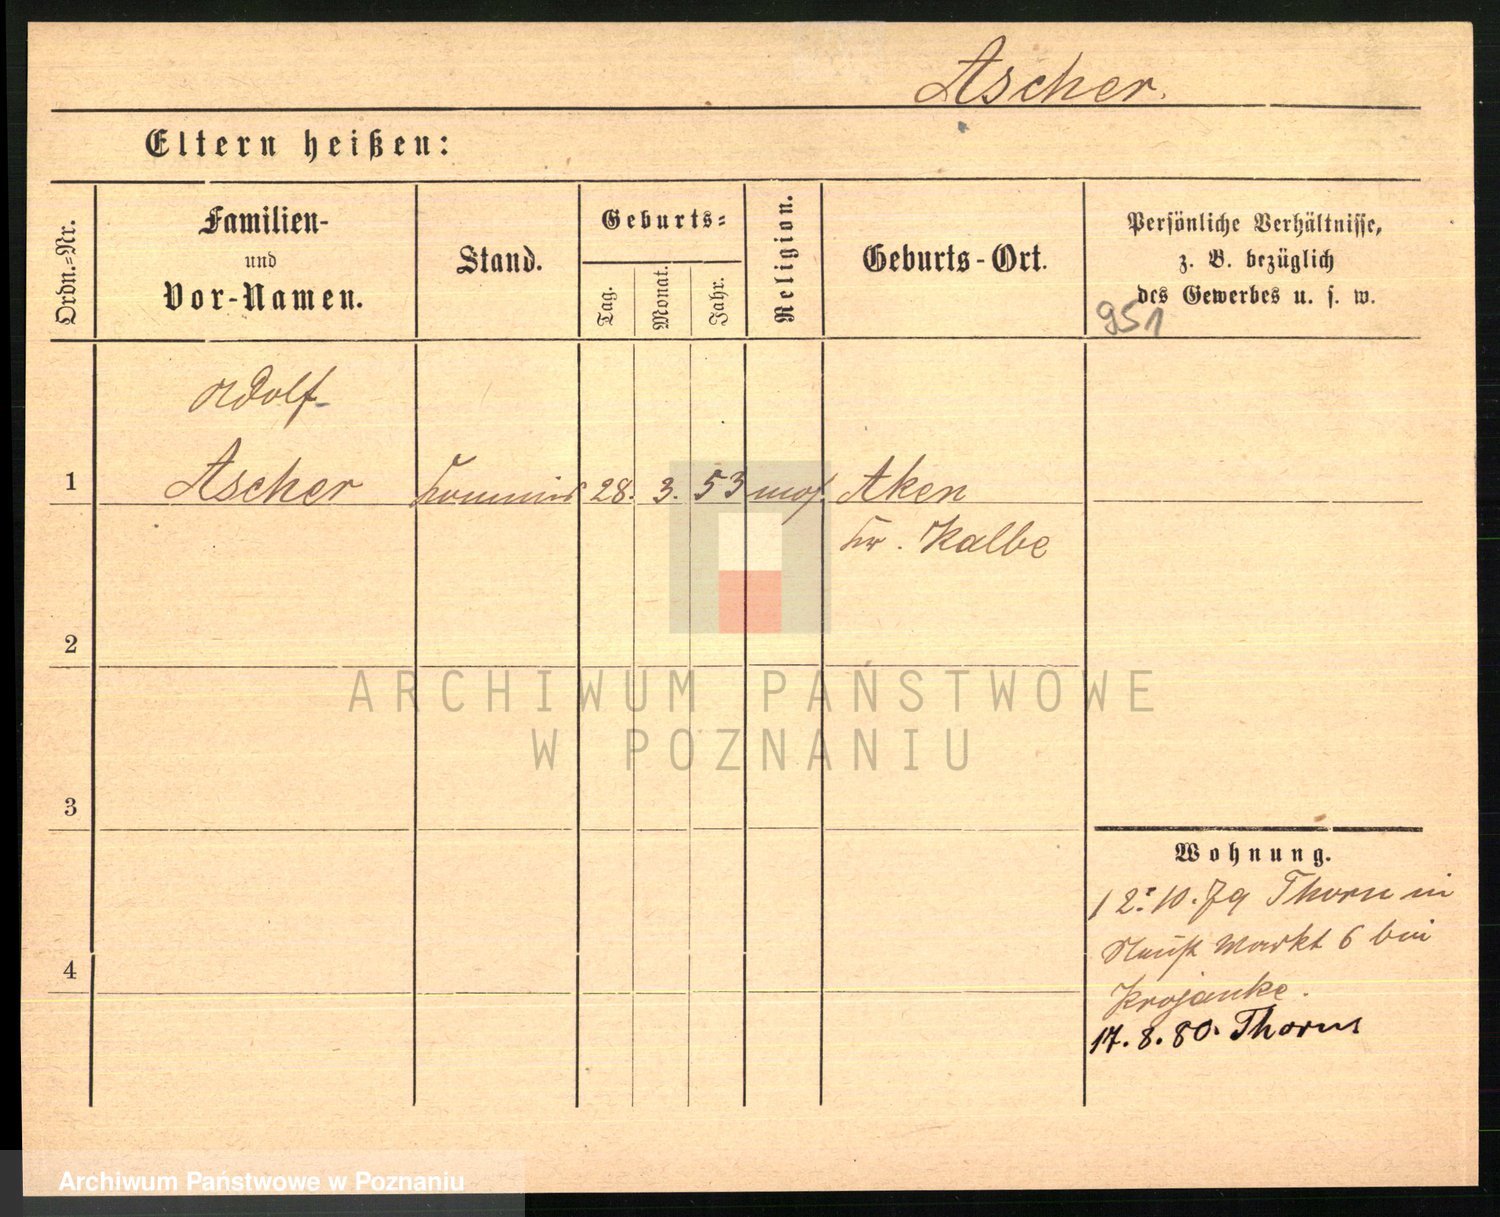 Ascher.
Eltern heißen:
Ordn.=Nr.
Familien-
und
Vor-Namen.
Stand.
Geburts=
Tag.
Monat.
Jahr.
Religion.
Geburts-Ort.
Persönliche Verhältnisse,
z. B. bezüglich
des Gewerbes u. s. w.
951
Adolf
1 Ascher Kommis 28. 3. 53 mos. Aken
Kr. Kalbe
2
ARCHIWUM PAŃSTWOWE
W POZNANIU
3
Wohnung.
12. 10. 79 Thorn in
Markt 6 bei
4
Krojanke.
17. 8. 80. Thorn
Archiwum Państwowe w Poznaniu